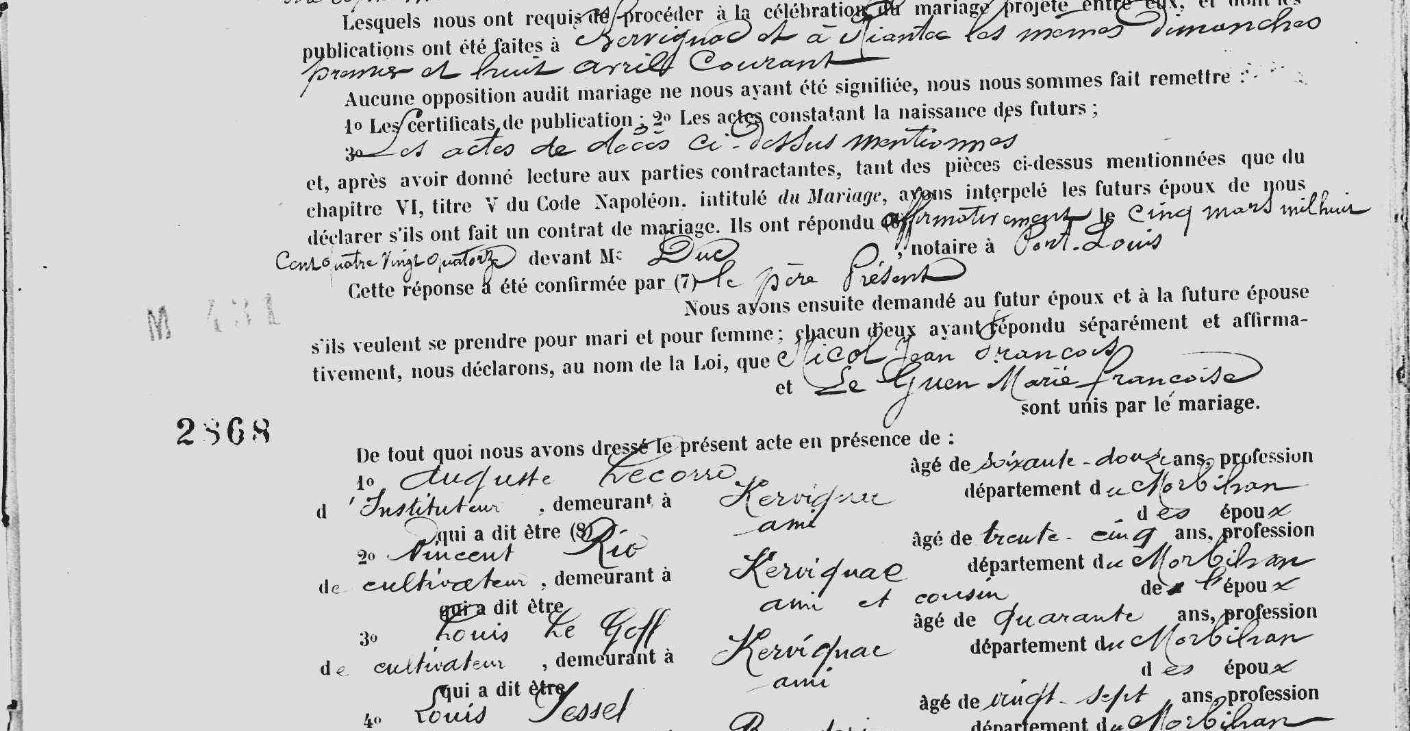 Lesquels nous ont requis de procéder à la célébration du mariage projeté entre eux, et dont les
publications ont été faites à Kervignac et à Riantec les mêmes Dimanches
premier et huit avril Courant
Aucune opposition audit mariage ne nous ayant été signifiée, nous nous sommes fait remettre :
1o Les certificats de publication ; 2o Les actes constatant la naissance des futurs ;
3o Les actes de décès ci-dessus mentionnés
et, après avoir donné lecture aux parties contractantes, tant des pièces ci-dessus mentionnées que du
chapitre VI, titre V du Code Napoléon. intitulé du Mariage, avons interpelé les futurs époux de nous
déclarer s'ils ont fait un contrat de mariage. Ils ont répondu affirmativement le cinq mars mil huit
Cent quatre vingt quatorze devant Me Duc , notaire à Port-Louis
Cette réponse a été confirmée par (7) le père Présent
Nous ayons ensuite demandé au futur époux et à la future épouse
M 431
s'ils veulent se prendre pour mari et pour femme ; chacun d'eux ayant répondu séparément et affirma-
tivement, nous déclarons, au nom de la Loi, que Nicol Jean François
et Le Guen Marie françoise
sont unis par le mariage.
2868
De tout quoi nous avons dressé le présent acte en présence de :
1o Auguste Lecorre âgé de soixante-douze ans, profession
d 'Instituteur , demeurant à Kervignac département du Morbihan
qui a dit être (8) ami des époux
2o Vincent Rio âgé de trente-cinq ans, profession
de cultivateur , demeurant à Kervignac département du Morbihan
qui a dit être ami et cousin de l'époux
3o Louis Le Goff âgé de quarante ans, profession
de cultivateur , demeurant à Kervignac département du Morbihan
qui a dit être ami des époux
4o Louis Jessel âgé de vingt-sept ans, profession
département du Morbihan